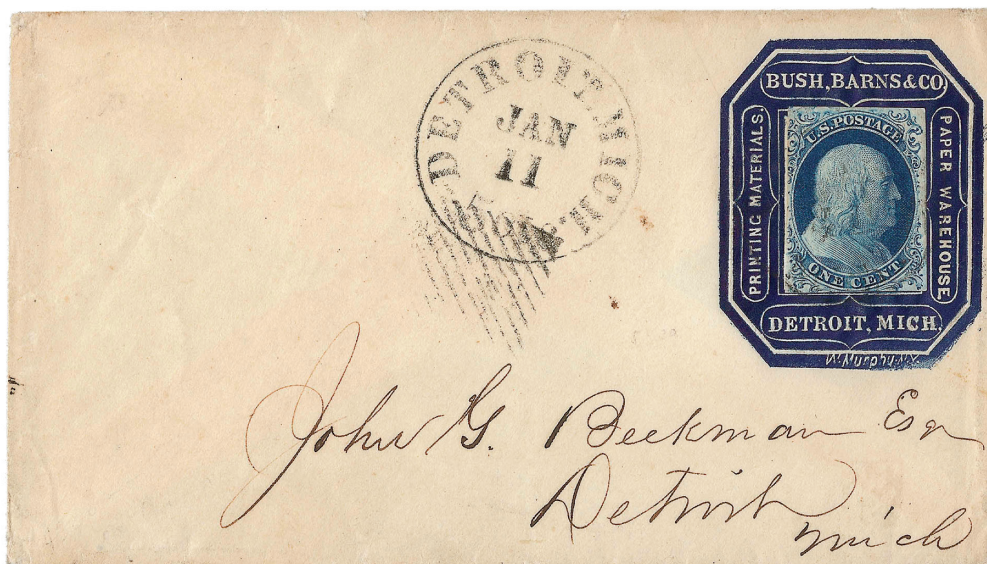 DETROIT. MICH.
JAN
11
BUSH, BARNS & CO.
PRINTING MATERIALS.
U.S. POSTAGE
ONE CENT
PAPER WAREHOUSE
DETROIT, MICH.
W. Murphy N.Y.
John G. Beekman Esq
Detroit
Mich